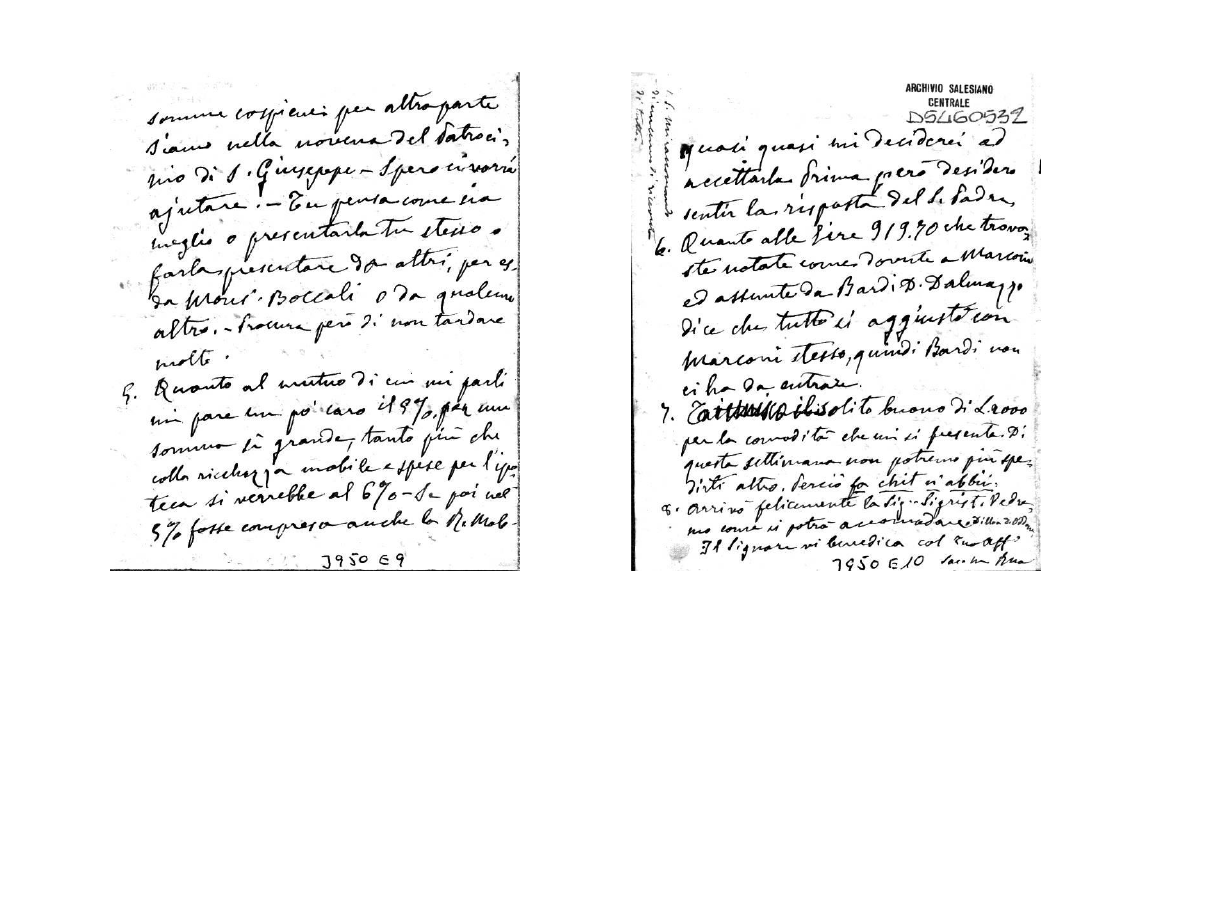 somme cospicue; per altra parte
siamo nella novena del Patroci-
nio di S. Giuseppe - Spero ci vorrà
ajutare. - Tu pensa come sia
meglio o presentarla tu stesso o
farla presentare da altri, per es.
da Mons. Boccali o da qualcun
altro. - Procura però di non tardare
molto.
5. Quanto al mutuo di cui mi parli
mi pare un po' caro il 5%, per una
somma sì grande, tanto più che
colla ricchezza mobile e spese per l'ipo-
teca si verrebbe al 6% - Se poi nel
5% fosse compresa anche la R. Mob.
J950 E9
ARCHIVIO SALESIANO
CENTRALE
D5460532
quasi quasi mi deciderei ad
accettarla. Prima però desidero
sentir la risposta del S. Padre.
6. Quanto alle Lire 919.70 che trova-
ste notate come dovute a Marconi
ed assunte da Bardi D. Dalmazzo
dice che tutto si aggiustò con
Marconi stesso, quindi Bardi non
ci ha da entrare.
7. solito buono di L. 2000
per la comodità che mi si presenta. Di
questa settimana non potremo più spe-
dirti altro. Perciò fa chit ti abbii.
8. Arrivò felicemente la Sig. Sigrist. Vedre-
mo come si potrà accomodare.
Il Signore vi benedica col Tuo Aff.
Sac. Rua
J950 E10